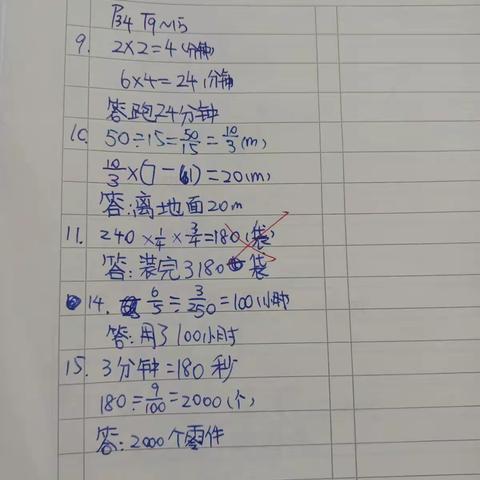 P34 T9~15
9. 2×2=4(分钟)
6×4=24(分钟)
答跑24分钟
10. 50÷15=50/15=10/3(m)
10/3×(7-1)=20(m)
答:离地面20m
11. 240×1/4×3/4=180(袋)
答:装完了180袋
14. 6/5÷3/250=100(小时)
答:用了100小时
15. 3分钟=180秒
180÷9/100=2000(个)
答:2000个零件